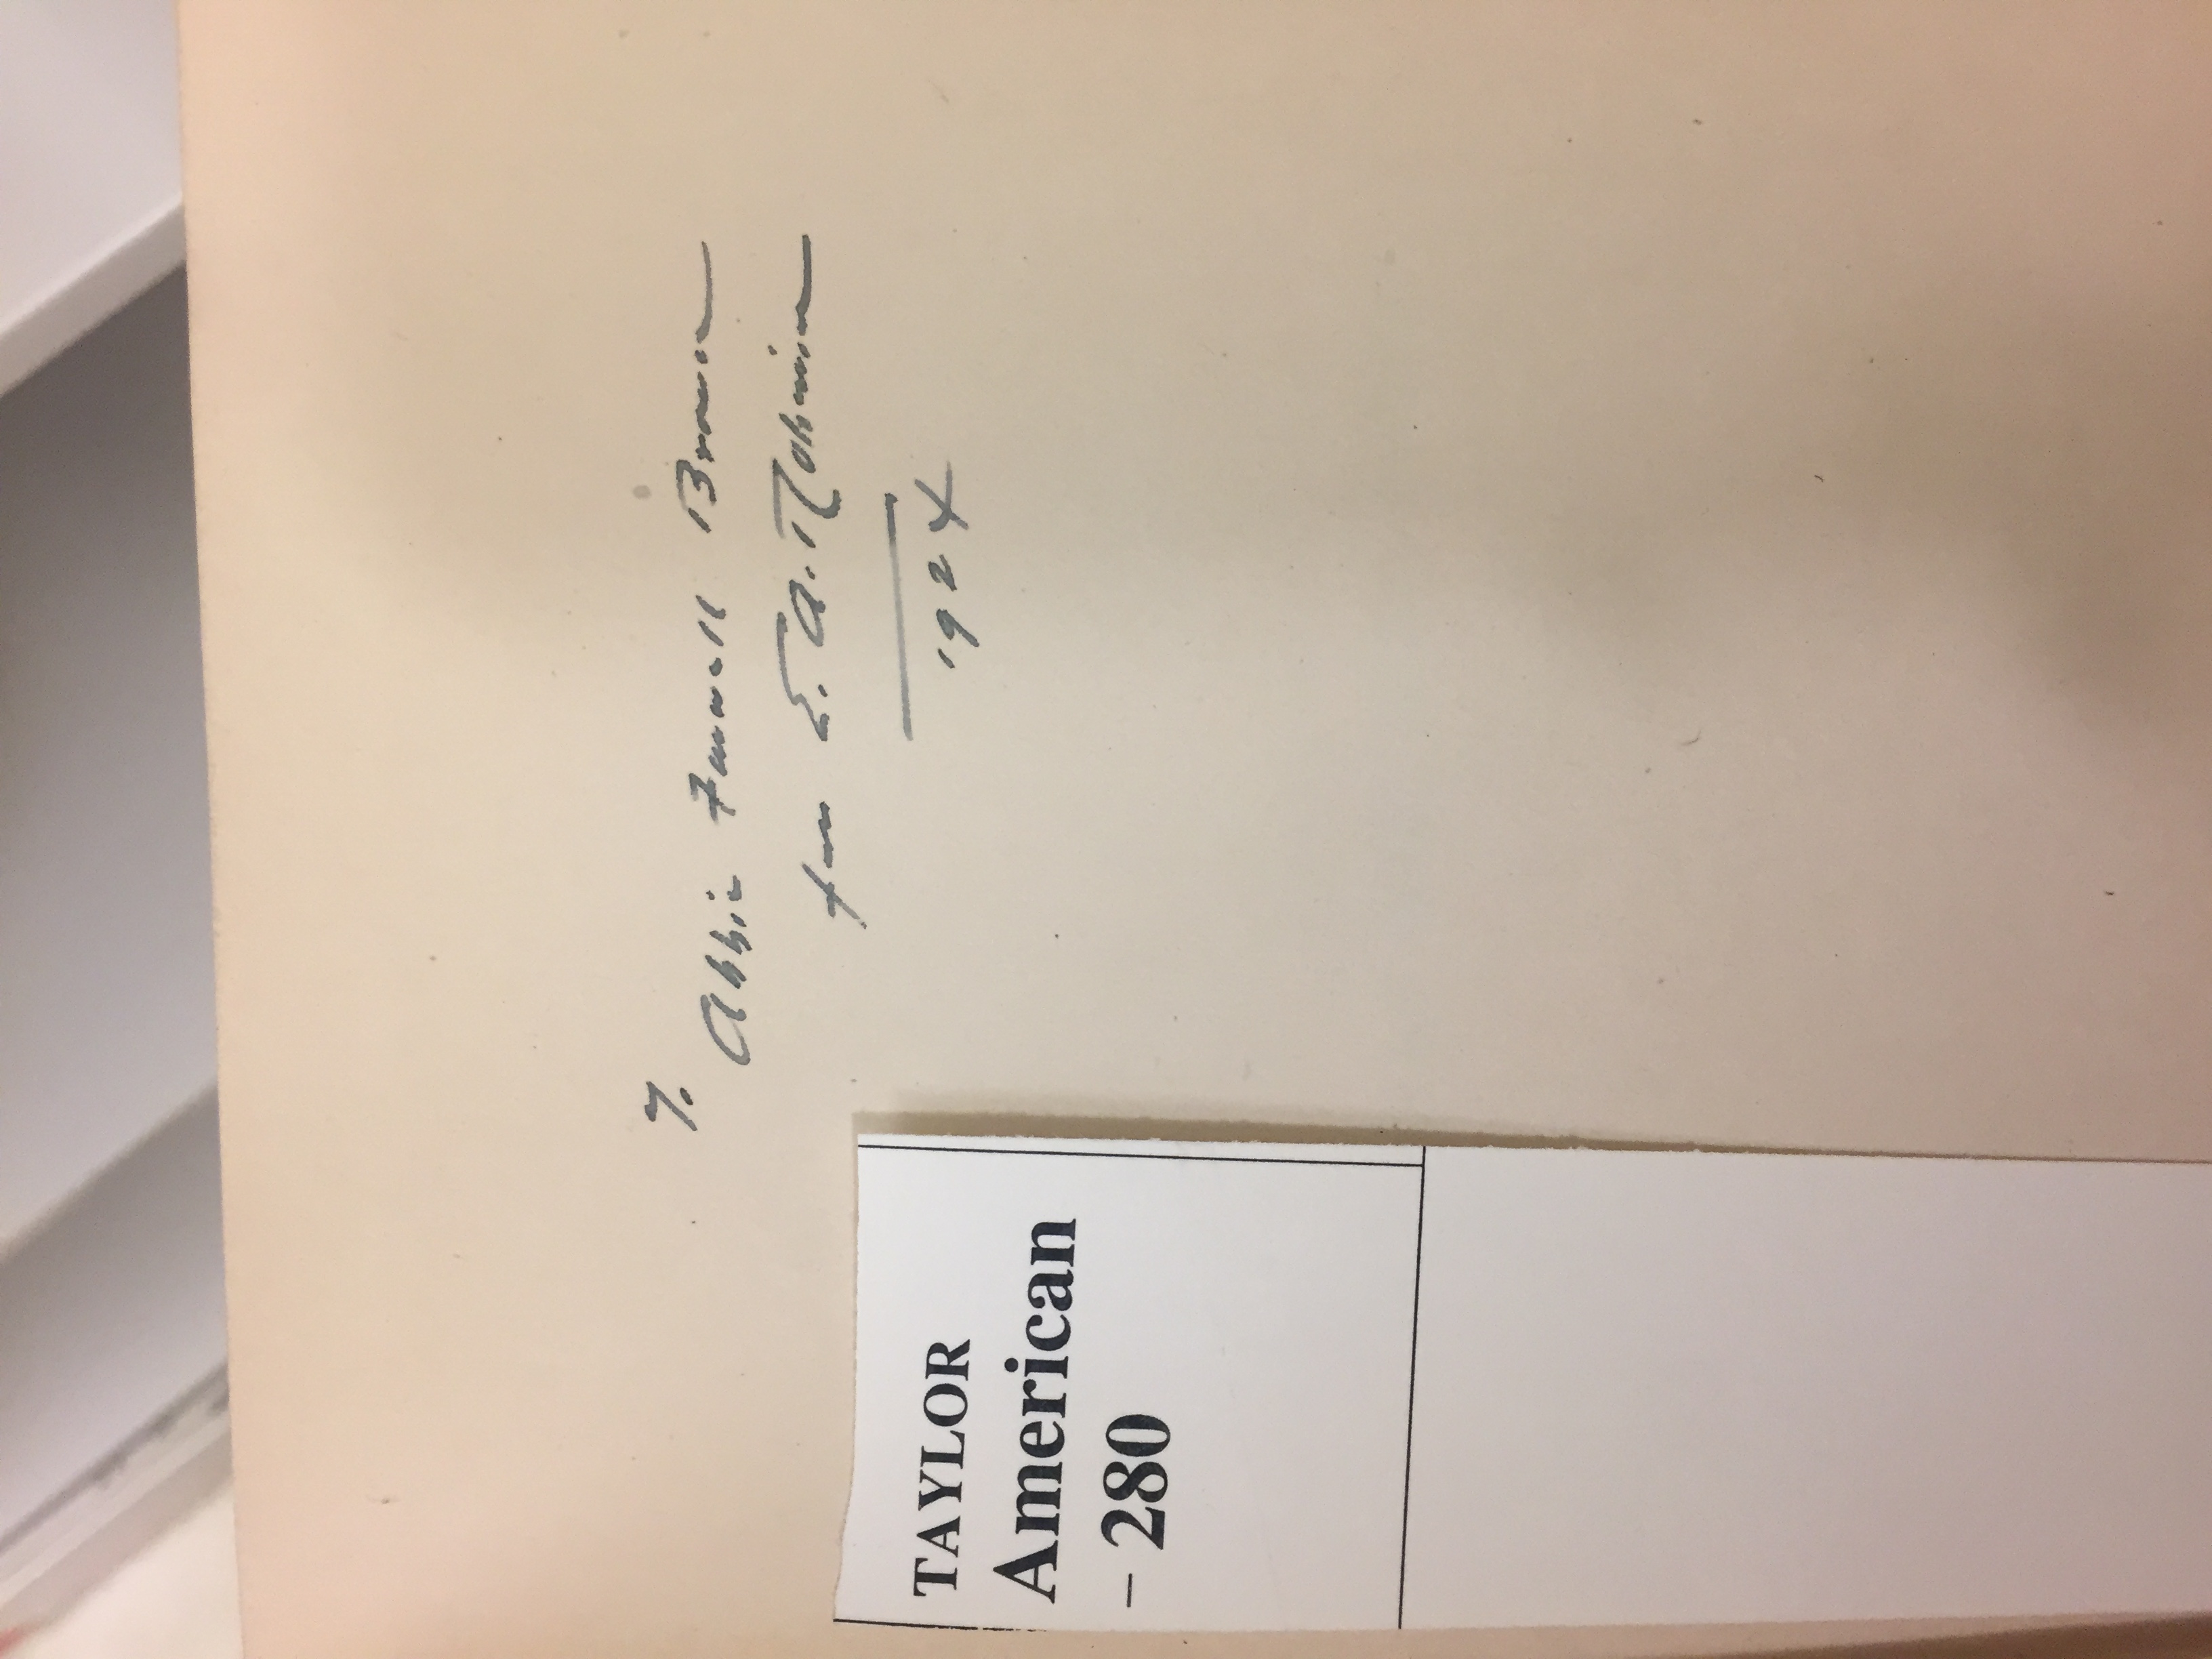 To
Abbie Farwell Brown
from E. A. Robinson
1924
TAYLOR
American
– 280